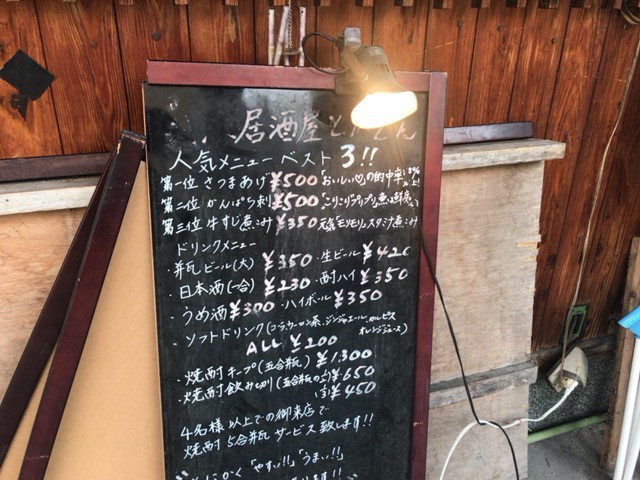 居酒屋
人気メニュー ベスト3!!
第一位 さつまあげ ¥500 「おいしい♡」の的中率
第二位 かんぱち刺 ¥500 「こりこりプリプリ」魚は鮮
第三位 牛すじ煮こみ ¥350 元気「モリモリ」スタミナ煮こみ
ドリンクメニュー
・瓶ビール(大) ¥350 ・生ビール ¥420
・日本酒(一合) ¥230 ・酎ハイ ¥350
・うめ酒 ¥300 ・ハイボール ¥350
・ソフトドリンク(コーラ、ウーロン茶、ジンジャエール、カルピス
オレンジジュース)
ALL ¥200
・焼酎キープ(五合瓶) ¥1,300
・焼酎飲み切り(五合瓶の ¥650
¥450
4名様以上での御来店で
焼酎5合瓶サービス致します!!
「やすい!!」「うまい!!」